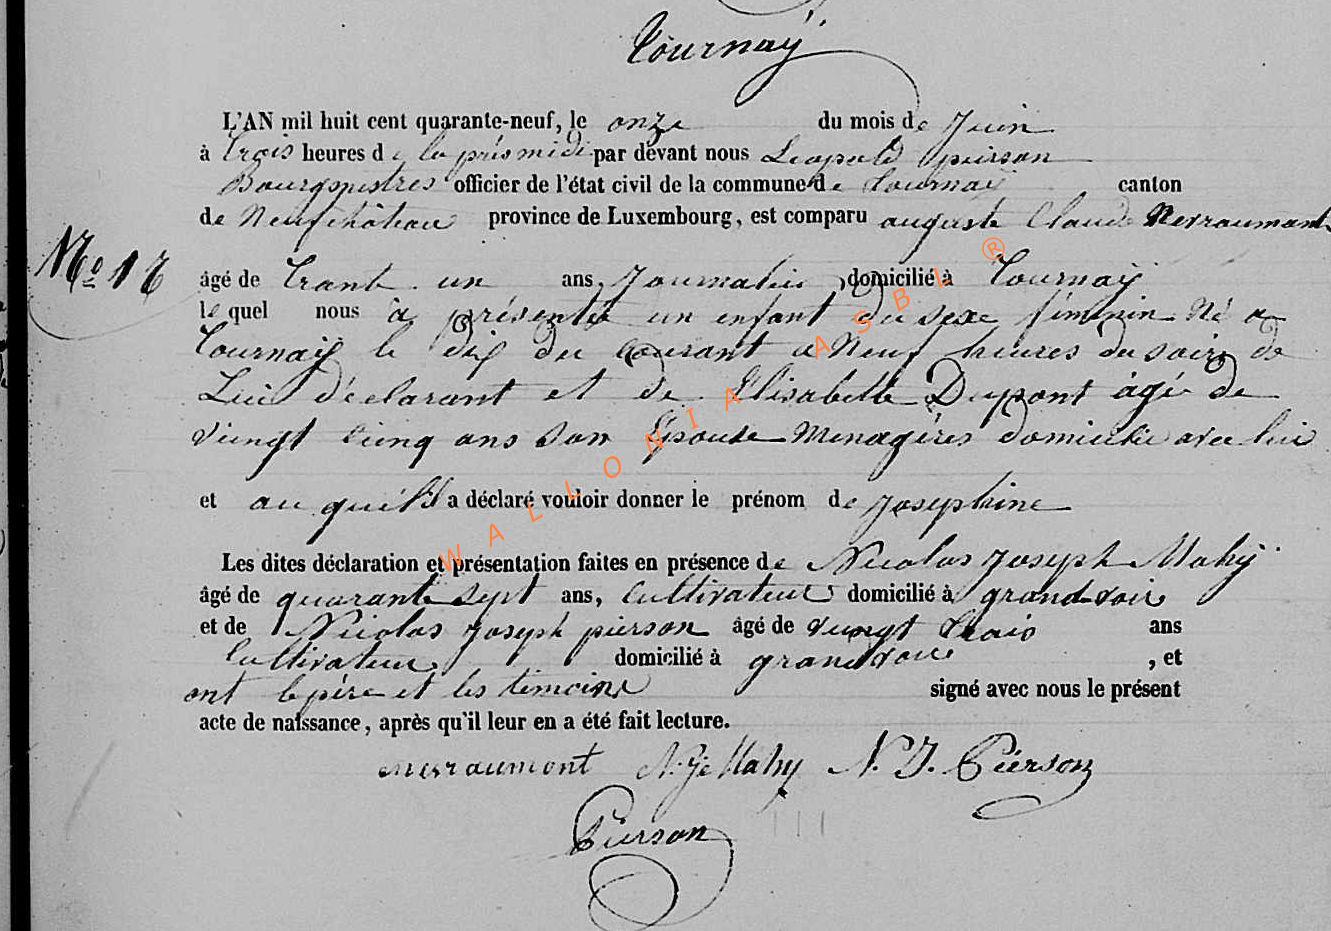 Tournaÿ
L'AN mil huit cent quarante-neuf, le onze du mois de Juin
à trois heures de la près midi par devant nous Leopold pierson
Bourgmestres officier de l'état civil de la commune de Tournaÿ canton
de Neufchâteau province de Luxembourg, est comparu auguste Claude Merraumont
No 12
âgé de trante un ans, Journalier domicilié à Tournaÿ
le quel nous à présentée un enfant du sexe féminin Né a
Tournaÿ le dix du courant a Neuf heures du soir de
Lui déclarant et de Elisabette Dupont âgé de
vingt cinq ans son Epouse Menagéres domicilié avec lui
et au quel il a déclaré vouloir donner le prénom de Josephine
Les dites déclaration et présentation faites en présence de Nicolas Joseph Mahÿ
âgé de quarante sept ans, Cultivateur domicilié à grandvoir
et de Nicolas Joseph pierson âgé de vingt trois ans
Cultivateur domicilié à grandvoir , et
ont le père et les témoins signé avec nous le présent
acte de naissance, après qu'il leur en a été fait lecture.
merraumont N. J. Mahy N. J. Pierson
Pierson
WALLONIA ASBL ®